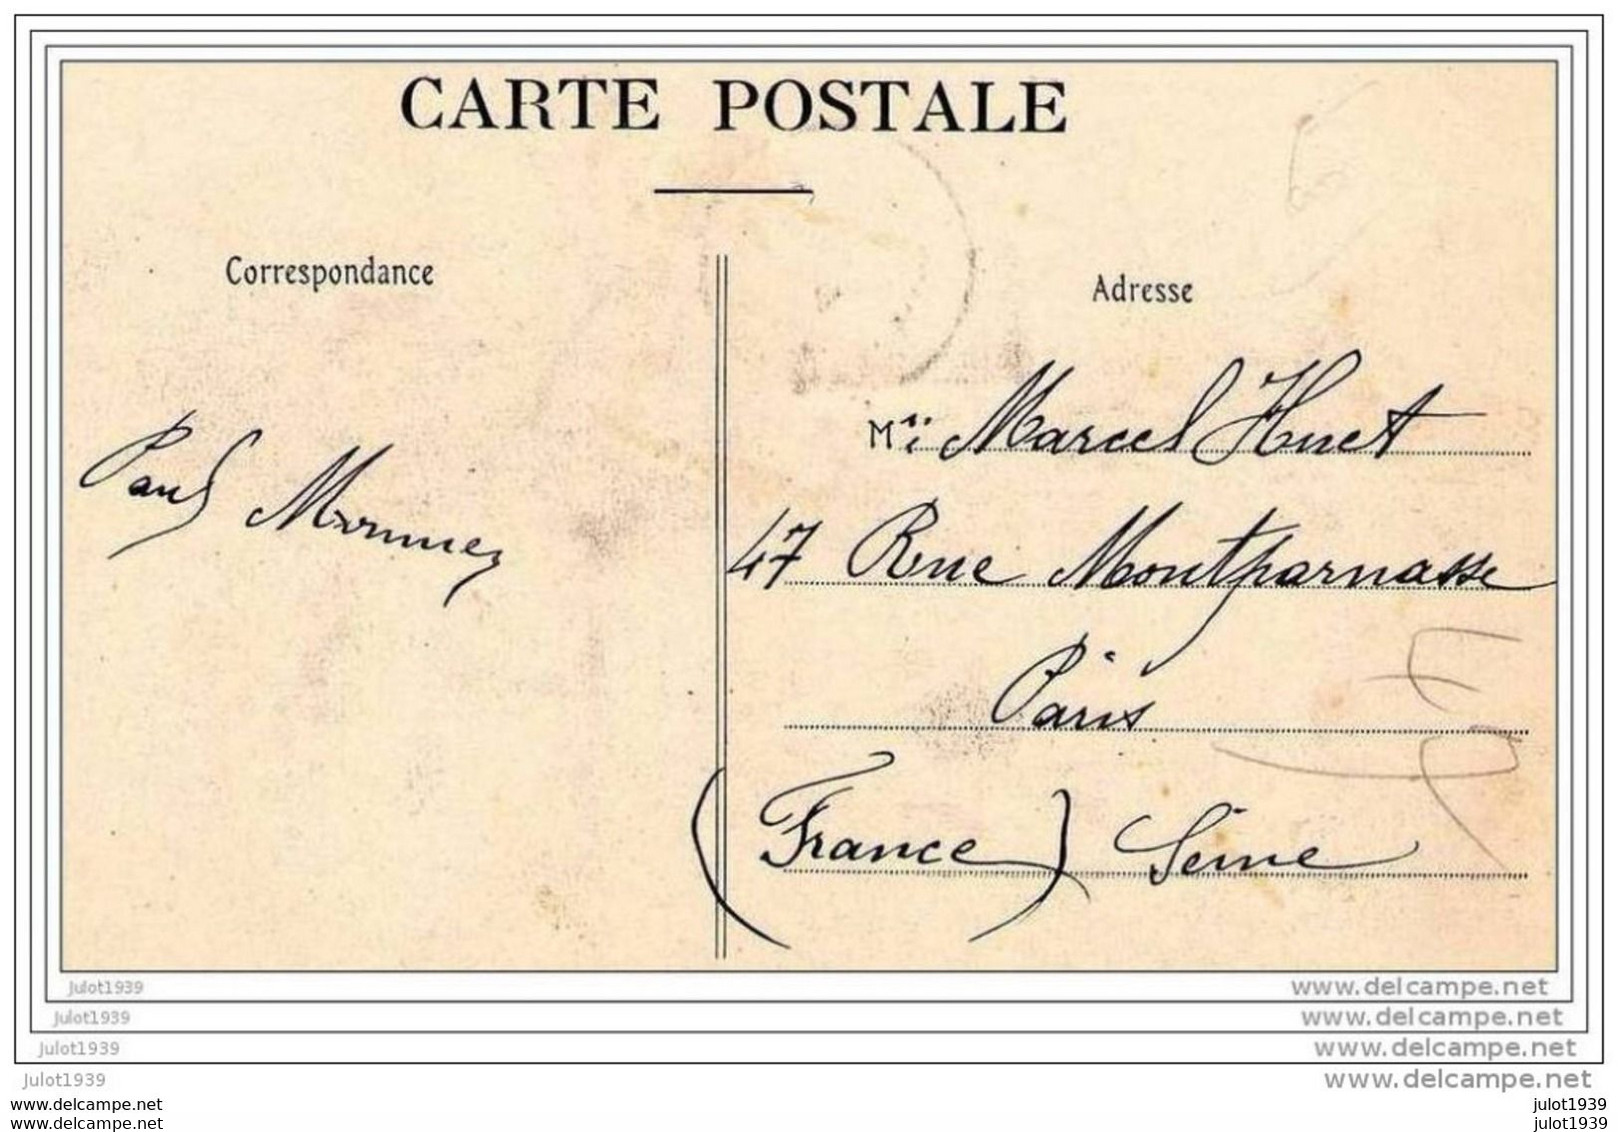 CARTE POSTALE
Correspondance
Adresse
Paul
M Marcel Huet
47 Rue Montparnasse
Paris
(France) Seine
Julot1939
www.delcampe.net
Julot1939
www.delcampe.net
Julot1939
www.delcampe.net
Julot1939
www.delcampe.net
www.delcampe.com
julot1939
www.delcampe.com
julot1939